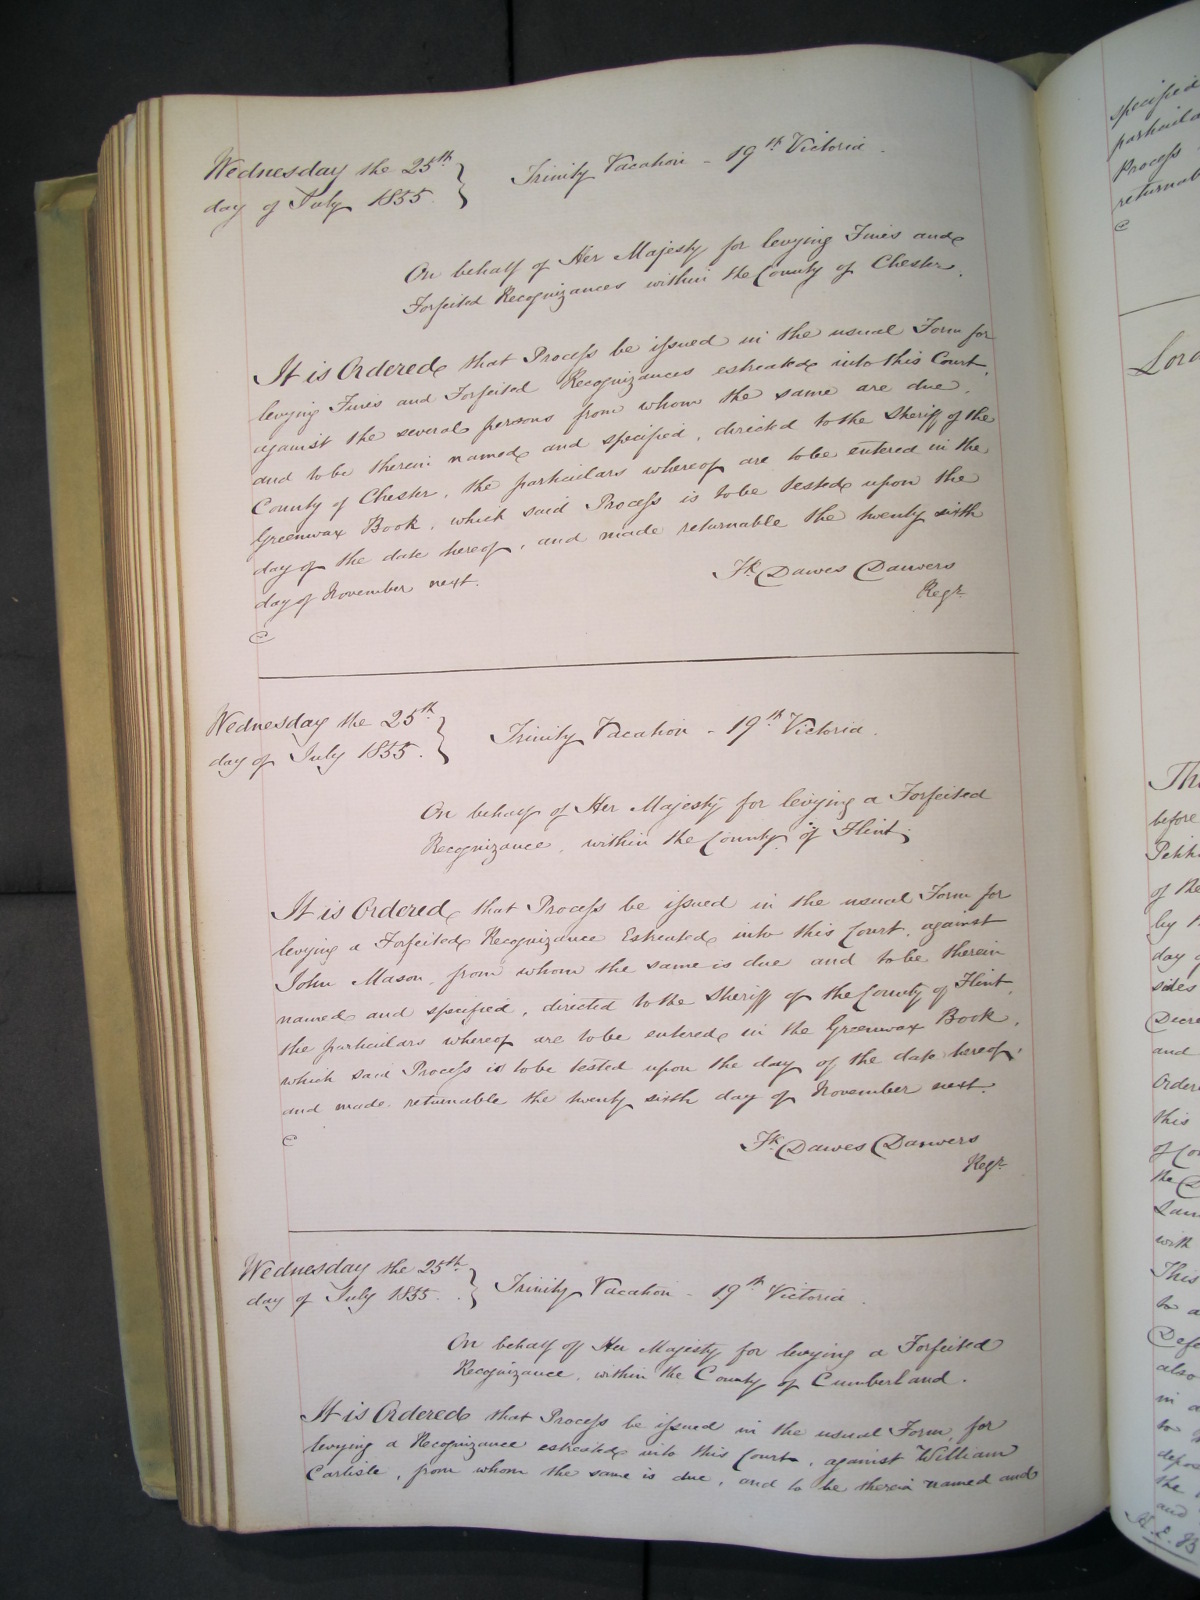 Wednesday the 25th
day of July 1855.
Trinity Vacation - 19th Victoria.
On behalf of Her Majesty for levying Fines and
Forfeited Recognizances within the County of Chester.
It is Ordered that Process be issued in the usual Form for
levying Fines and Forfeited Recognizances estreated into this Court,
against the several persons from whom the same are due,
and to be therein named and specified, directed to the Sheriff of the
County of Chester, the particulars whereof are to be entered in the
Greenwax Book, which said Process is to be tested upon the
day of the date hereof, and made returnable the twenty sixth
day of November next.
Fk. Dawes Danvers
Regr.
C
Wednesday the 25th
day of July 1855.
Trinity Vacation - 19th Victoria.
On behalf of Her Majesty for levying a Forfeited
Recognizance, within the County of Flint.
It is Ordered that Process be issued in the usual Form for
levying a Forfeited Recognizance Estreated into this Court, against
John Mason, from whom the same is due and to be therein
named and specified, directed to the Sheriff of the County of Flint,
the particulars whereof are to be entered in the Greenwax Book,
which said Process is to be tested upon the day of the date hereof,
and made returnable the twenty sixth day of November next.
C
Fk. Dawes Danvers
Regr.
Wednesday the 25th
day of July 1855.
Trinity Vacation - 19th Victoria.
On behalf of Her Majesty for levying a Forfeited
Recognizance, within the County of Cumberland.
It is Ordered that Process be issued in the usual Form, for
levying a Recognizance estreated into this Court, against William
Carlisle, from whom the same is due, and to be therein named and
specified
Process
C
before
of the
day
sides
and
this
the
with
This
to a
also
in a
to
the
and